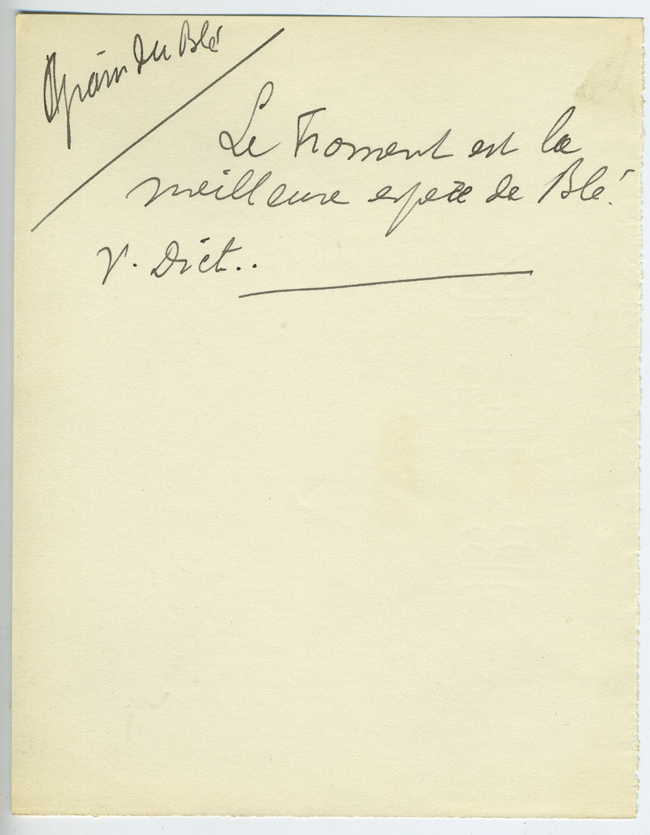 du Blé
Le Froment est la
meilleure espece de Blé.
V. Dict..